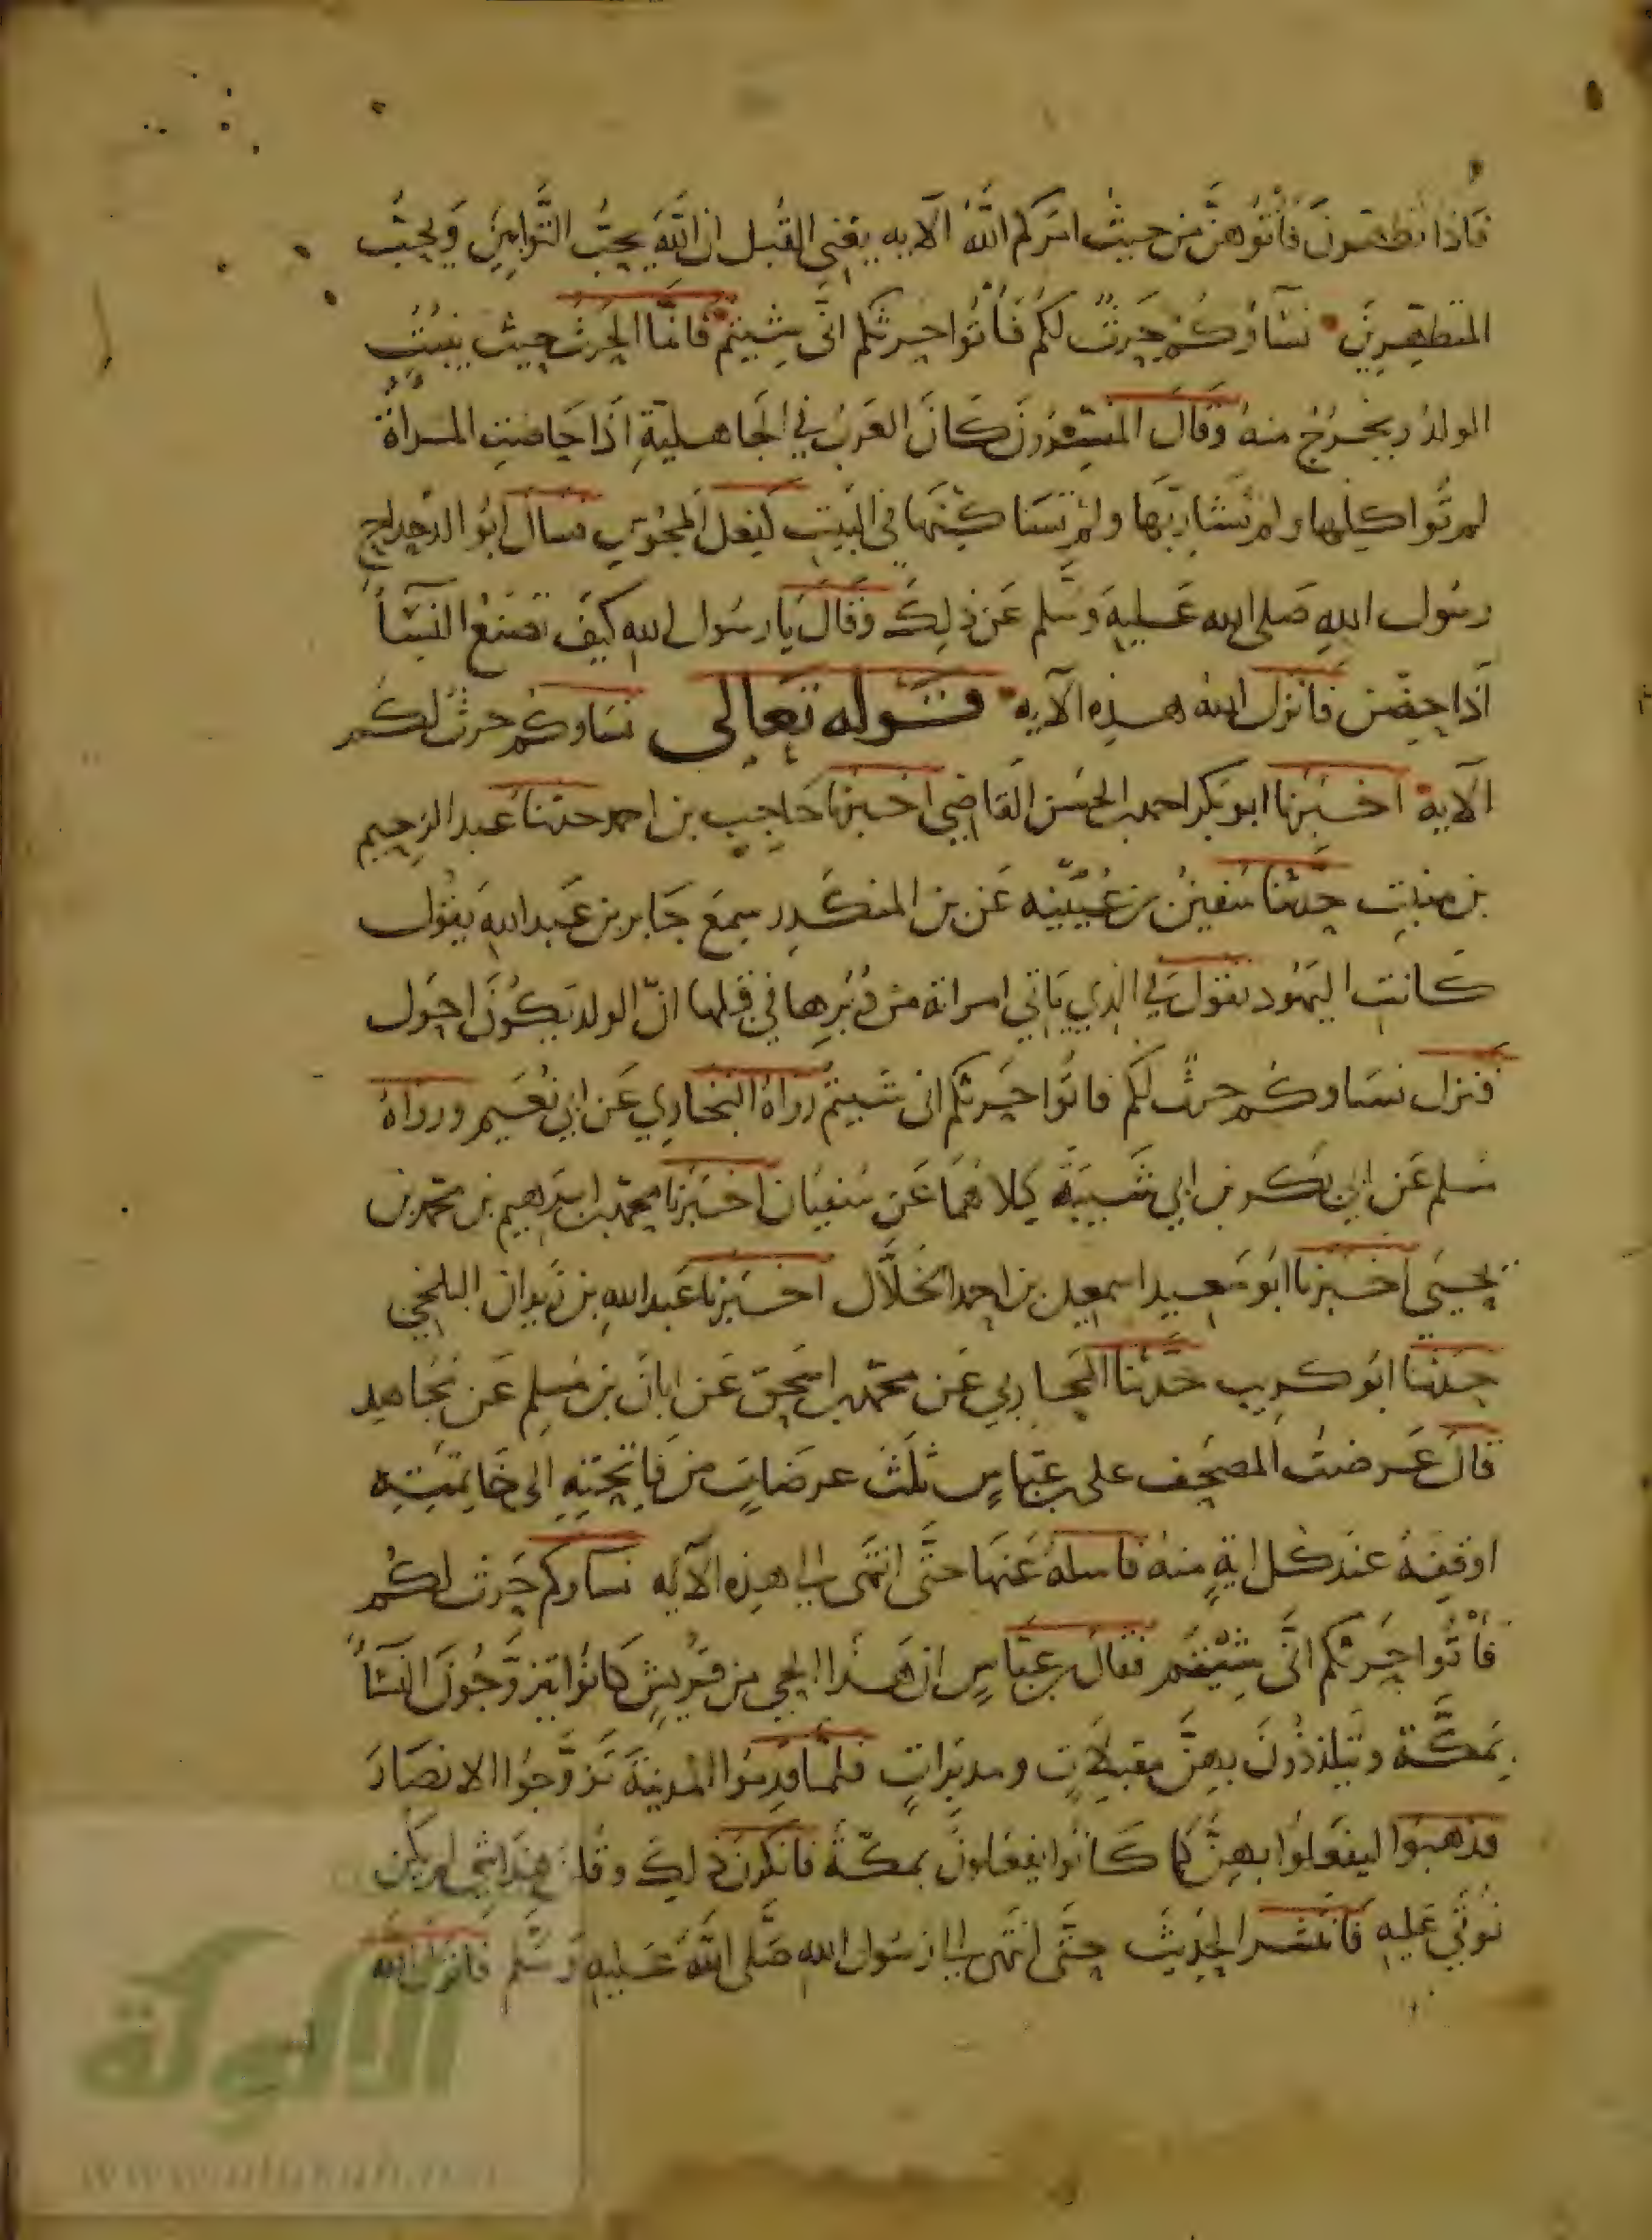 فاذا تطهرن فأتوهن من حيث امركم الله الآيه يعني القبل ان الله يحب التوابين ويحب
المتطهرين نساؤكم حرث لكم فأتوا حرثكم انى شيتم فانما الحرث حيث ينبت
الولد ويخرج منه وقال المفسرون كان العرب في الجاهلية اذا حاضت المراة
لم تواكلها ولم تشاربها ولم تساكنها في البيت كفعل المجوس فسال ابو الدحداح
رسول الله صلى الله عليه وسلم عن ذلك وقال يا رسول الله كيف نصنع النسآ
اذا حضن فانزل الله هذه الآيه قوله تعالى نساوكم حرث لكم
الآيه اخبرنا ابو بكر احمد بن الحسن القاضي اخبرنا حاجب بن احمد حدثنا عبد الرحيم
بن منيب حدثنا سفين بن عيينه عن بن المنكدر سمع جابر بن عبد الله يقول
كانت اليهود تقول في الذي ياتي امراته من دبرها في قبلها ان الولد يكون احول
فنزل نساوكم حرث لكم فاتوا حرثكم انى شيتم رواه البخاري عن ابي نعيم ورواه
مسلم عن ابي بكر بن ابي شيبة كلاهما عن سفيان اخبرنا محمد بن ابرهيم بن محمد بن
يحيى اخبرنا ابو سعيد اسمعيل بن احمد الخلال اخبرنا عبد الله بن زيدان البلخي
حدثنا ابو كريب حدثنا المحاربي عن محمد بن اسحق عن ابان بن مسلم عن مجاهد
قال عرضت المصحف على بن عباس ثلث عرضات من فاتحته الى خاتمته
اوقفه عند كل اية منه فاسله عنها حتى انتهى الى هذه الآيه نساوكم حرث لكم
فأتوا حرثكم انى شيتم فقال بن عباس ان هذا الحي من قريش كانوا يتزوجون النسآ
بمكة ويتلذذون بهن مقبلات ومدبرات فلما قدموا المدينة تزوجوا الانصار
فذهبوا ليفعلوا بهن كما كانوا يفعلون بمكة فانكرن ذلك وقلن هذا شي لم نكن
نوتي عليه فانتشر الحديث حتى انتهى الى رسول الله صلى الله عليه وسلم فانزل الله
الألوكة
www.alukah.net